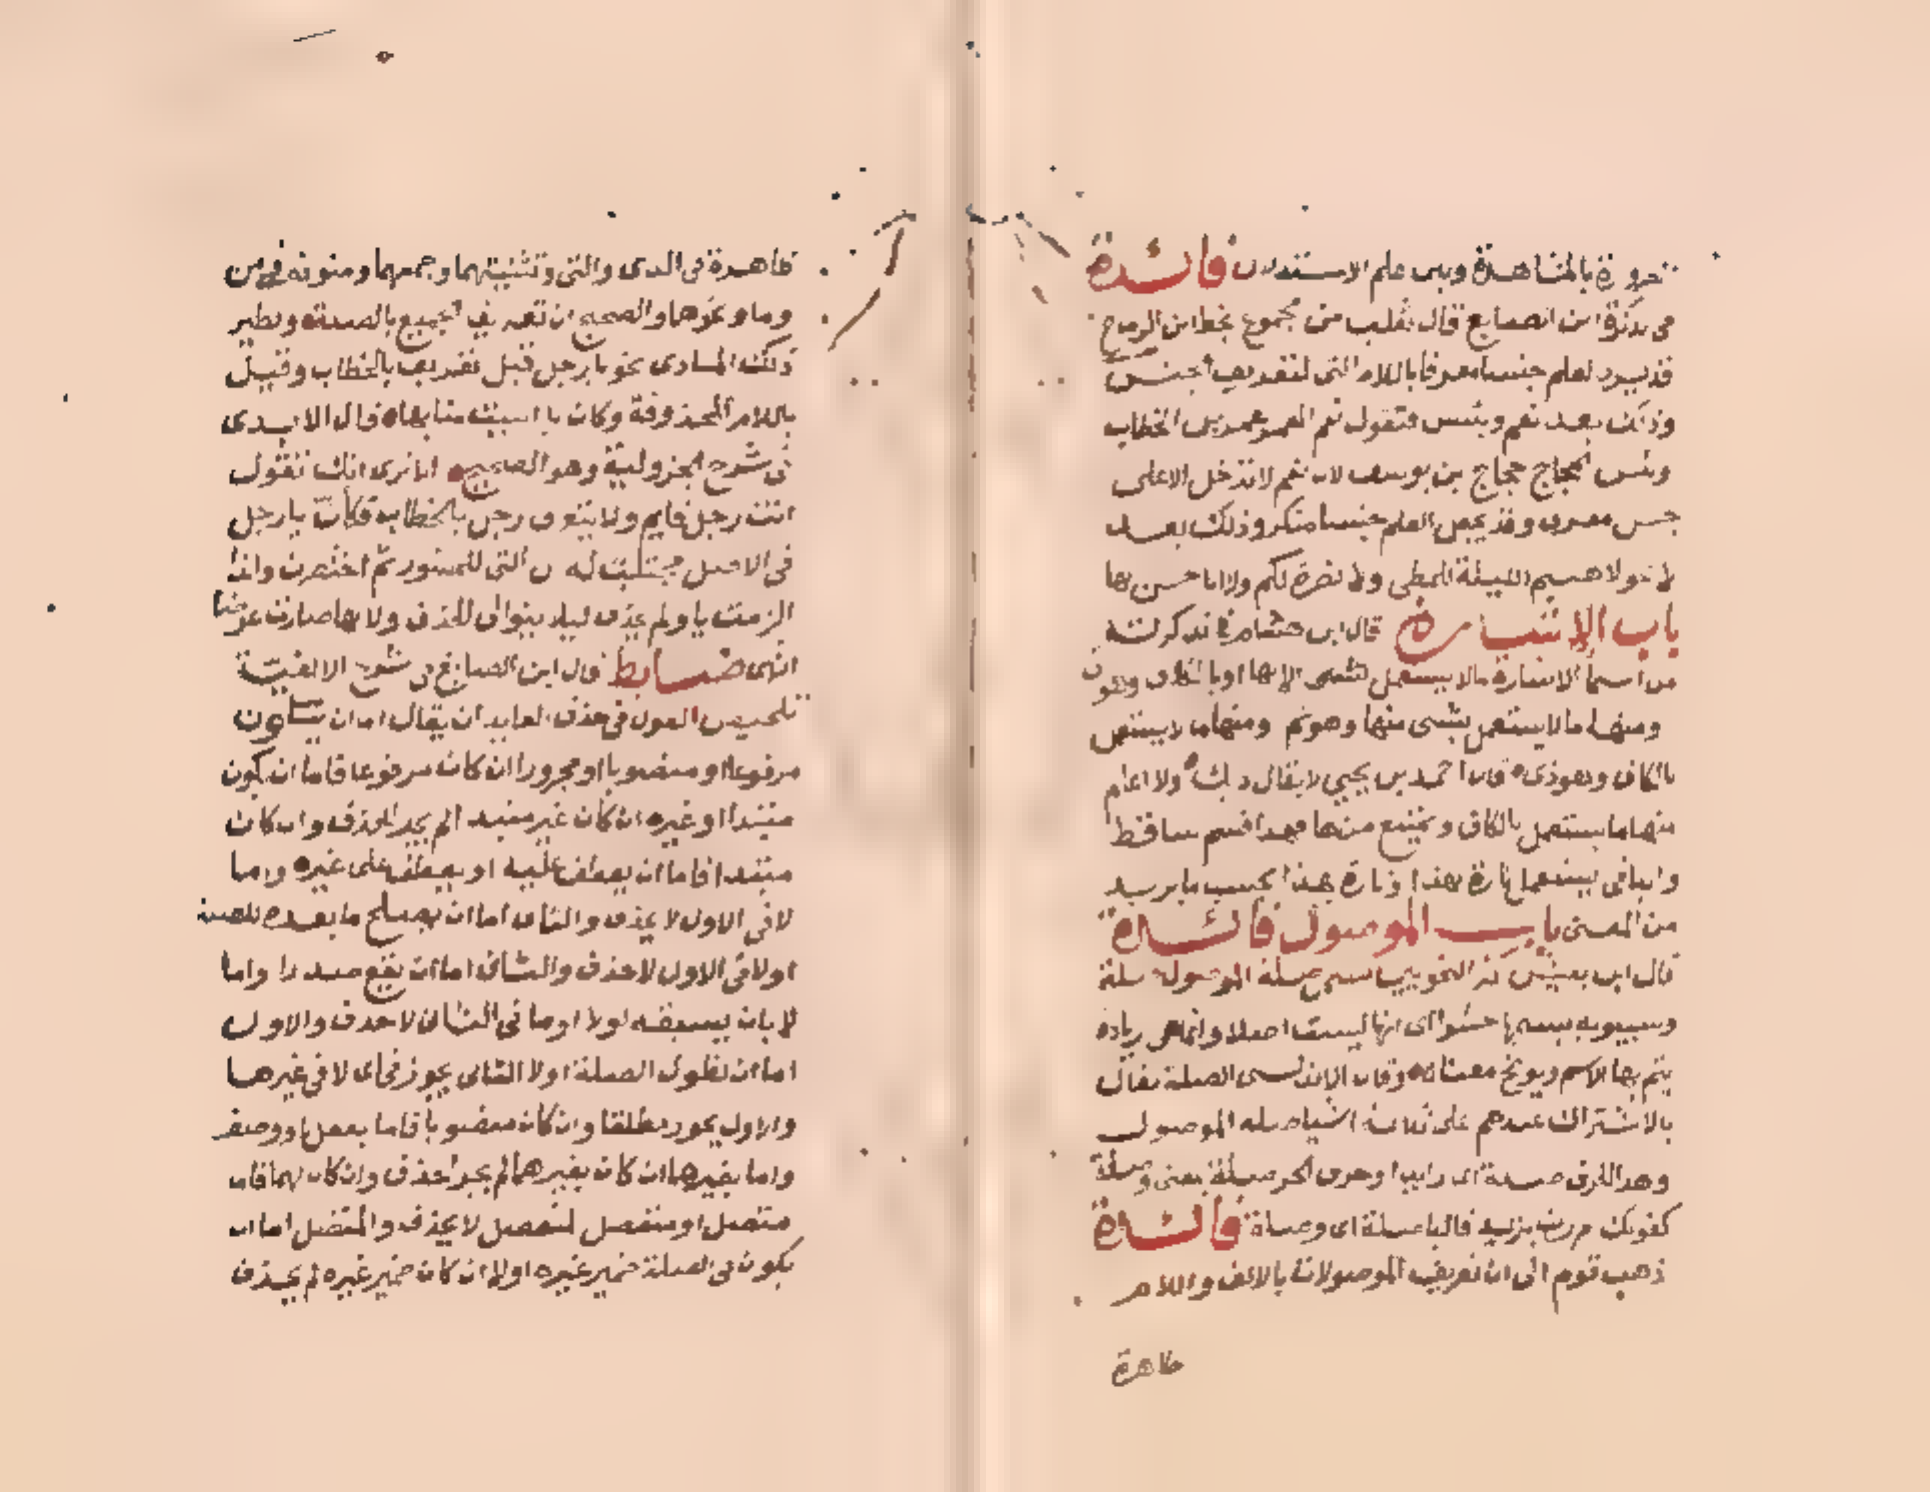 ضرورة بالمشاهدة وبين علم الاستدلال فائدة
في تذكرة ابن الصايغ قال نقلت من مجموع بخط ابن الرماح
قد يرد لعلم جنسا معرفا باللام التي لتعريف الجنس
وذلك بعد نعم وبئس فتقول نعم العمر عمر بن الخطاب
وبئس الحجاج حجاج بن يوسف لان نعم لا تدخل الا على
جنس معرف وقد يجعل العلم جنسا منكر وذلك بعد
لا نحو لا هيثم الليلة للمطي ولا بصرة لكم ولا ابا حسن لها
باب الاشارة قال ابن هشام في تذكرته
من اسماء الاشارة ما لا يستعمل الا بالها او بالكاف وهو
ومنها ما لا يستعمل بشى منها وهو ثم ومنها ما لا يستعمل
بالكاف وهو ذى قال احمد بن يحيى لا يقال ذيك ولا اعلم
منها ما يستعمل بالكاف ويمتنع من ها فهذا قسم ساقط
والباقى يستعمل تارة بهذا وتارة بهذا بحسب ما يريد
من المعنى باب الموصول فائدة
قال ابن يعيش اكثر النحويين سمى صلة الموصول صلة
وسيبويه يسميها حشوا اى انها ليست اصلا وانما هى زيادة
يتم بها الاسم ويوضح معناه وقال الاندلسى الصلة تقال
بالاشتراك عندهم على ثلاثة اشيا صلة الموصول
وهذا الحرف صلة اى زايد وحرف الجر صلة بمعنى وصلة
كقولك مررت بزيد فالبا صلة اى وصلة فائدة
ذهب قوم الى ان تعريف الموصولات بالالف واللام
ظاهرة
ظاهرة فى الذى والتى وتثنيتهما وجمعهما ومنوية فى من
وما ونحوهما والصحيح ان تعريف الجميع بالصلة ونظير
ذلك المنادى نحو يا رجل قيل تعريف بالخطاب وقيل
باللام المحذوفة وكان يا انيبت منابها قال الابدى
فى شرح الجزولية وهو الصحيح الا ترى انك تقول
انت رجل قايم ولا يتعرف رجل بالخطاب فكأن يا رجل
فى الاصل مجتلبت له ال التى للحضور ثم اختصرت واذا
الزمت يا ولم تحذف ليلا يتوالى الحذف ولانها صارت عوضا
انتهى ضابط قال ابن الصايغ فى شرح الالفية
تلخيص القول فى حذف العايد ان يقال اما ان يكون
مرفوعا او منصوبا او مجرورا ان كان مرفوعا فاما ان يكون
مبتدا او غيره ان كان غير مبتدا لم يجز الحذف وان كان
مبتدا فاما ان يعطف عليه او يعطف على غيره واما
لا فى الاول لا يحذف والثانى اما ان يصلح ما بعده للصلة
اولا فى الاول لا حذف والثانى اما ان يقع صدرا واما
لا بان يسبقه لولا او ما فى الثانى لا حذف والاول
اما ان تطول الصلة اولا الثانى يجوز فى اى لا فى غيرها
والاول يجوز مطلقا وان كان منصوبا فاما بفعل او وصف
واما بغيرها ان كان بغيرهما لم يجز الحذف وان كان بهما فاما
متصل او منفصل المنفصل لا يحذف والمتصل اما ان
يكون فى الصلة ضمير غيره اولا ان كان ضمير غيره لم يحذف